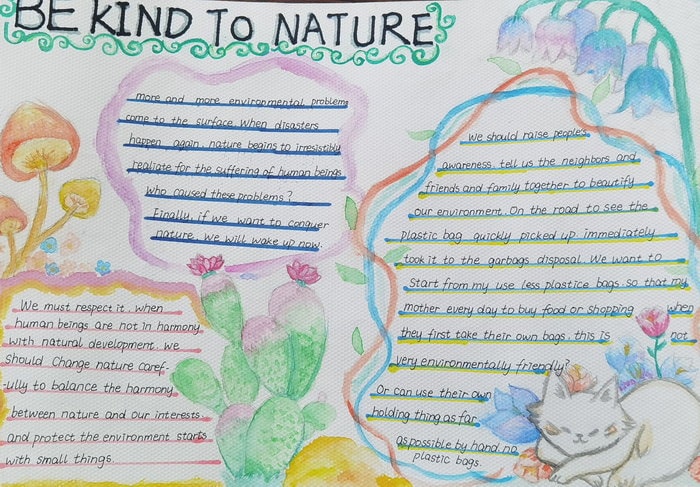 BE KIND TO NATURE
more and more environmental problems
come to the surface. When disasters
happen again, nature begins to irresistibly
retaliate for the suffering of human beings
who caused these problems?
Finally, if we want to conquer
nature, we will wake up now.
We must respect it. when
human beings are not in harmony
with natural development. we
should Change nature caref-
-ully to balance the harmony
between nature and our interests.
and protect the environment starts
with small things.
We should raise people's
awareness. tell us the neighbors and
friends and family together to beautify
our environment. On the road to see the
plastic bag quickly picked up immediately
took it to the garbags disposal. We want to
start from my use less plastice bags. so that my
mother every day to buy food or shopping when
they first take their own bags. this is not
very environmentally friendly?
Or can use their own
holding thing as far
as possible by hand. no
plastic bags.